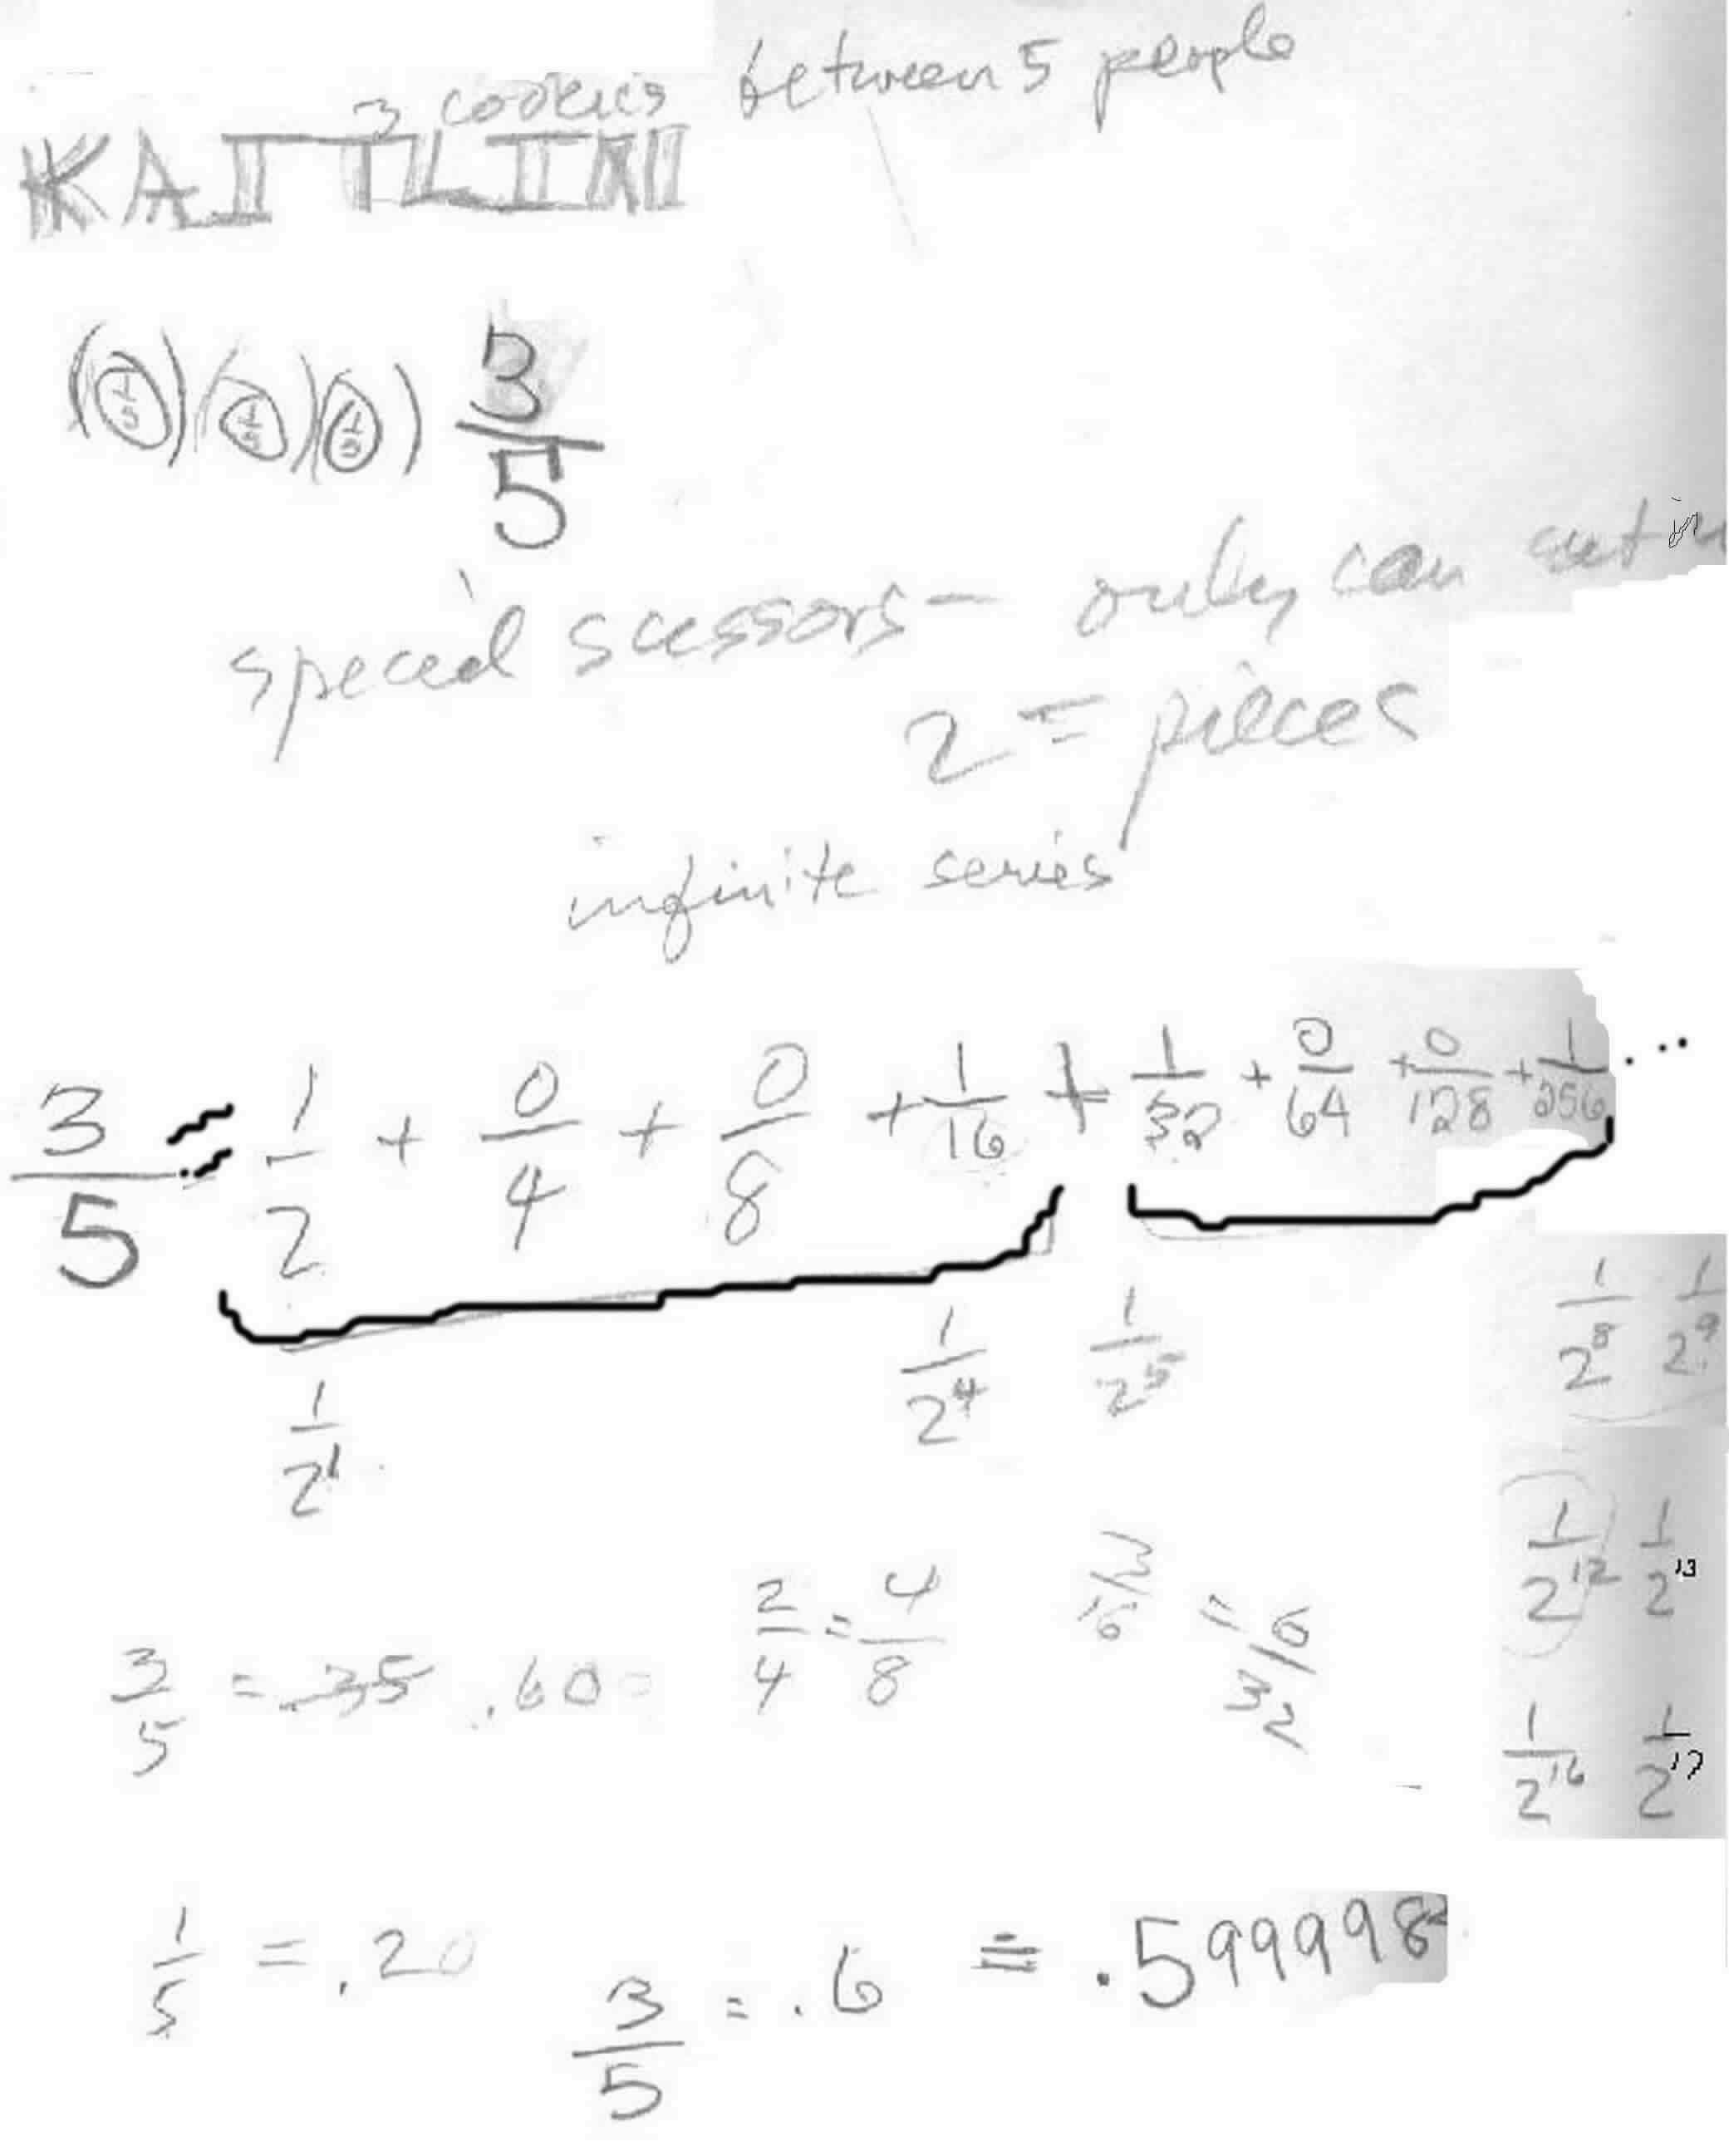 3 cookies between 5 people
KAITLIN
(1/5) (1/5) (1/5) 3/5
special scessors - only can cut in
2 = pieces
infinite series
3/5 = 1/2 + 0/4 + 0/8 + 1/16 + 1/32 + 0/64 + 0/128 + 1/256 ...
1/2^1 1/2^4 1/2^5 1/2^8 1/2^9
1/2^12 1/2^13
3/5 = .35 .60 2/4 = 4/8 3/16 = 6/32
1/2^16 1/2^17
1/5 = .20 3/5 = .6 = .599998